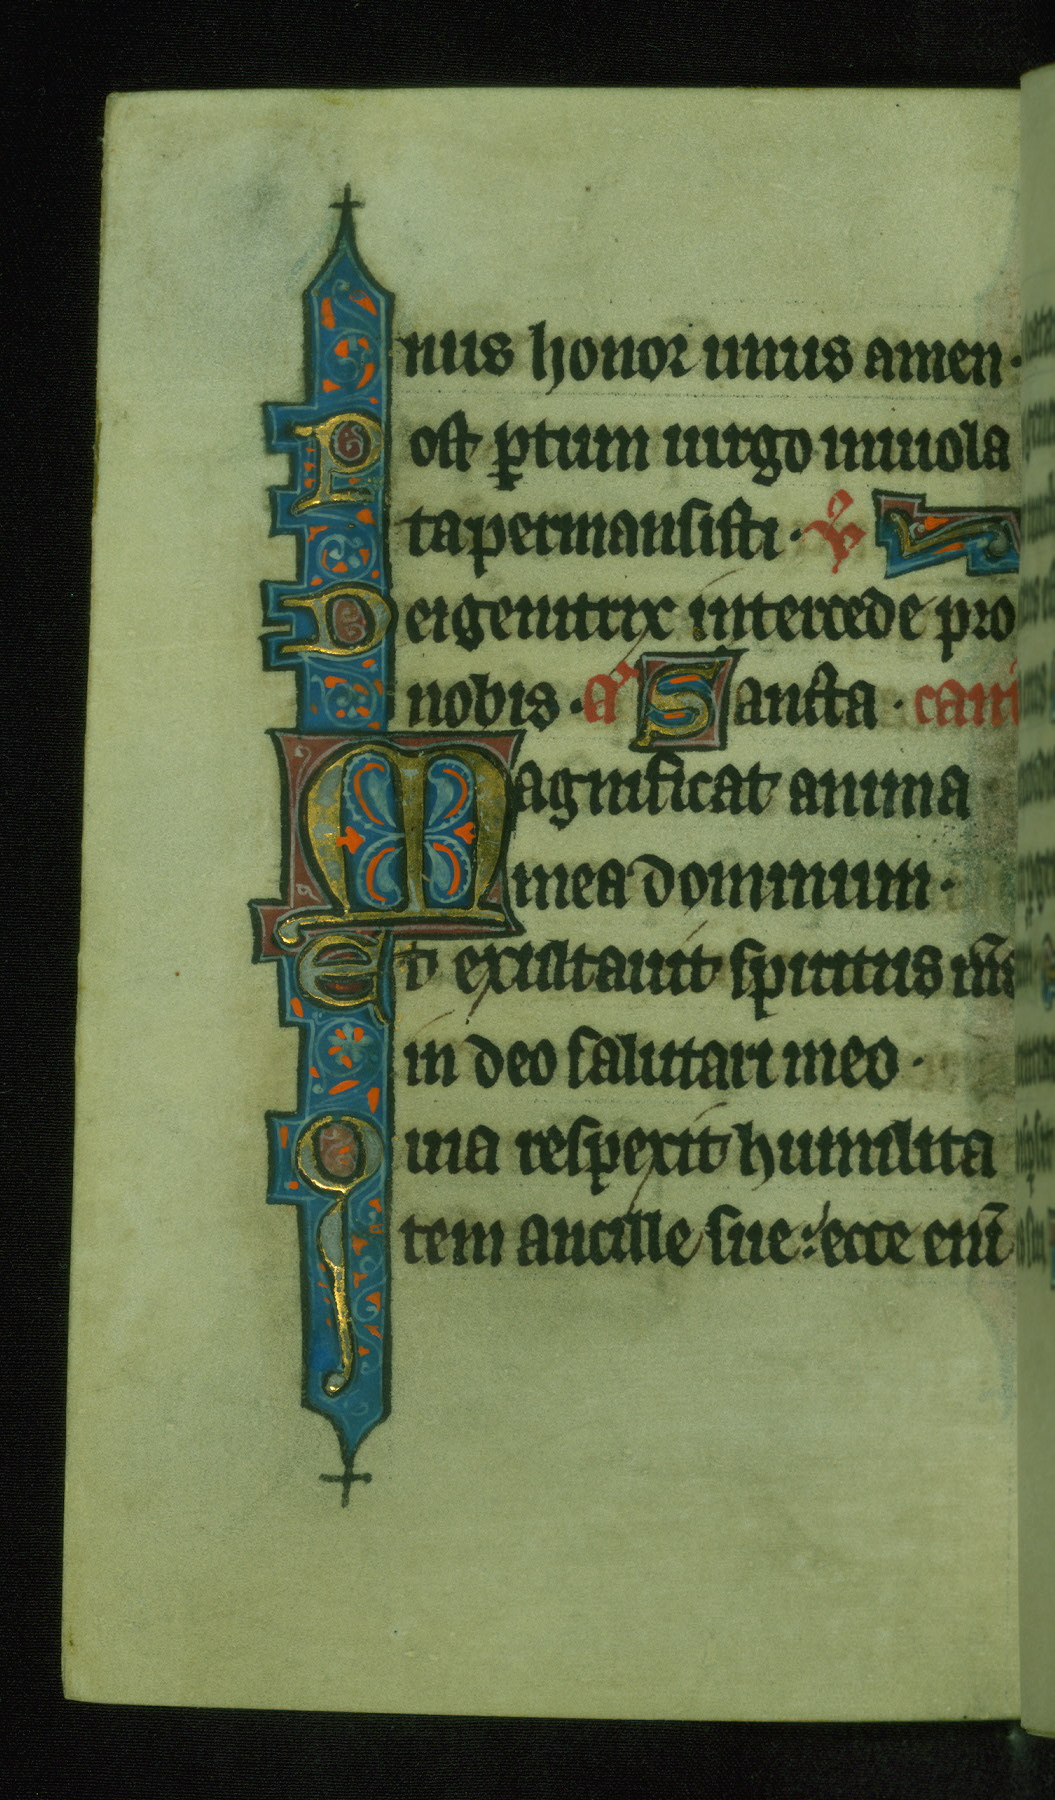 nus honor unus amen·
Post ꝑtum uirgo inuiola
ta permansisti· ℣
Dei genitrix intercede pro
nobis· a Sancta· cant
Magnificat anima
mea dominum·
Et exultauit spiritus
in deo salutari meo·
Quia respexit humilita
tem ancille sue: ecce eni̅